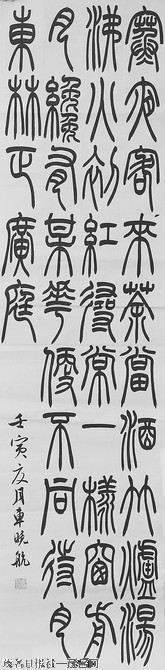 寒夜客來茶當酒竹爐湯
沸火初紅尋常一樣窗前
月纔有某花便不同待月
東林正廣庭
壬寅夏月車曉航